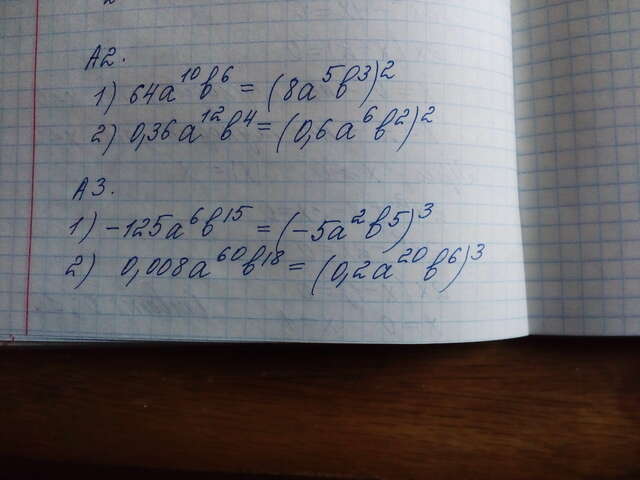 А2.
1) 64a¹⁰b⁶ = (8a⁵b³)²
2) 0,36a¹²b⁴ = (0,6a⁶b²)²
А3.
1) -125a⁶b¹⁵ = (-5a²b⁵)³
2) 0,008a⁶⁰b¹⁸ = (0,2a²⁰b⁶)³